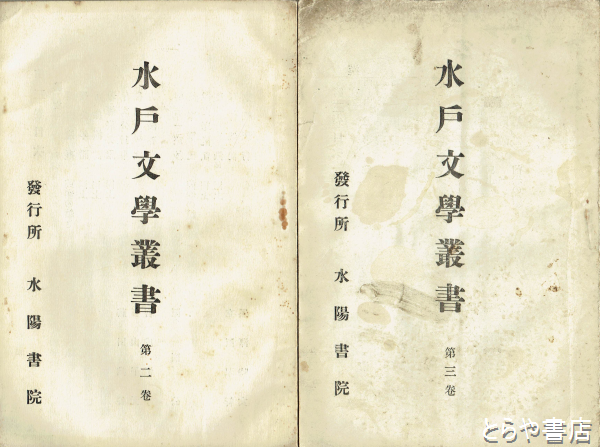 水戶文學叢書 第二卷
發行所 水陽書院
水戶文學叢書 第三卷
發行所 水陽書院
とらや書店